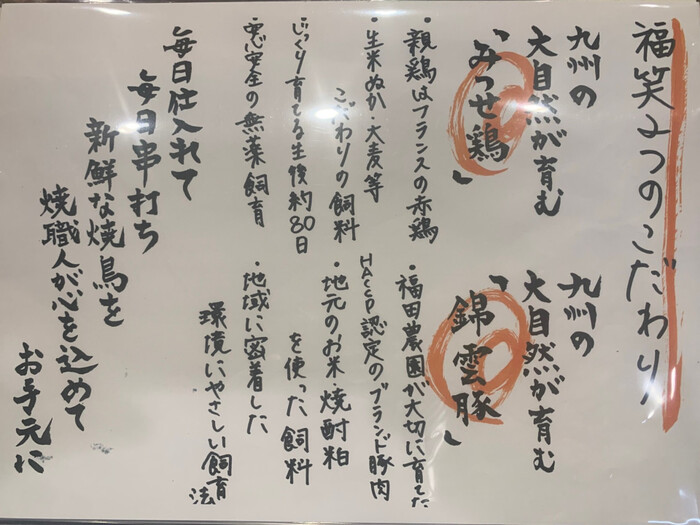 福笑みつのこだわり
九州の
大自然が育む
「みつせ鶏」
・親鶏はフランスの赤鶏
・生米ぬか・大麦等
こだわりの飼料
・じっくり育てる生後約80日
・安心安全の無薬飼育
九州の
大自然が育む
「錦雲豚」
・福田農園が大切に育てた
HACCP認定のブランド豚肉
・地元のお米・焼酎粕
を使った飼料
・地域に密着した
環境にやさしい飼育法
毎日仕入れて
毎日串打ち
新鮮な焼鳥を
焼職人が心を込めて
お手元に